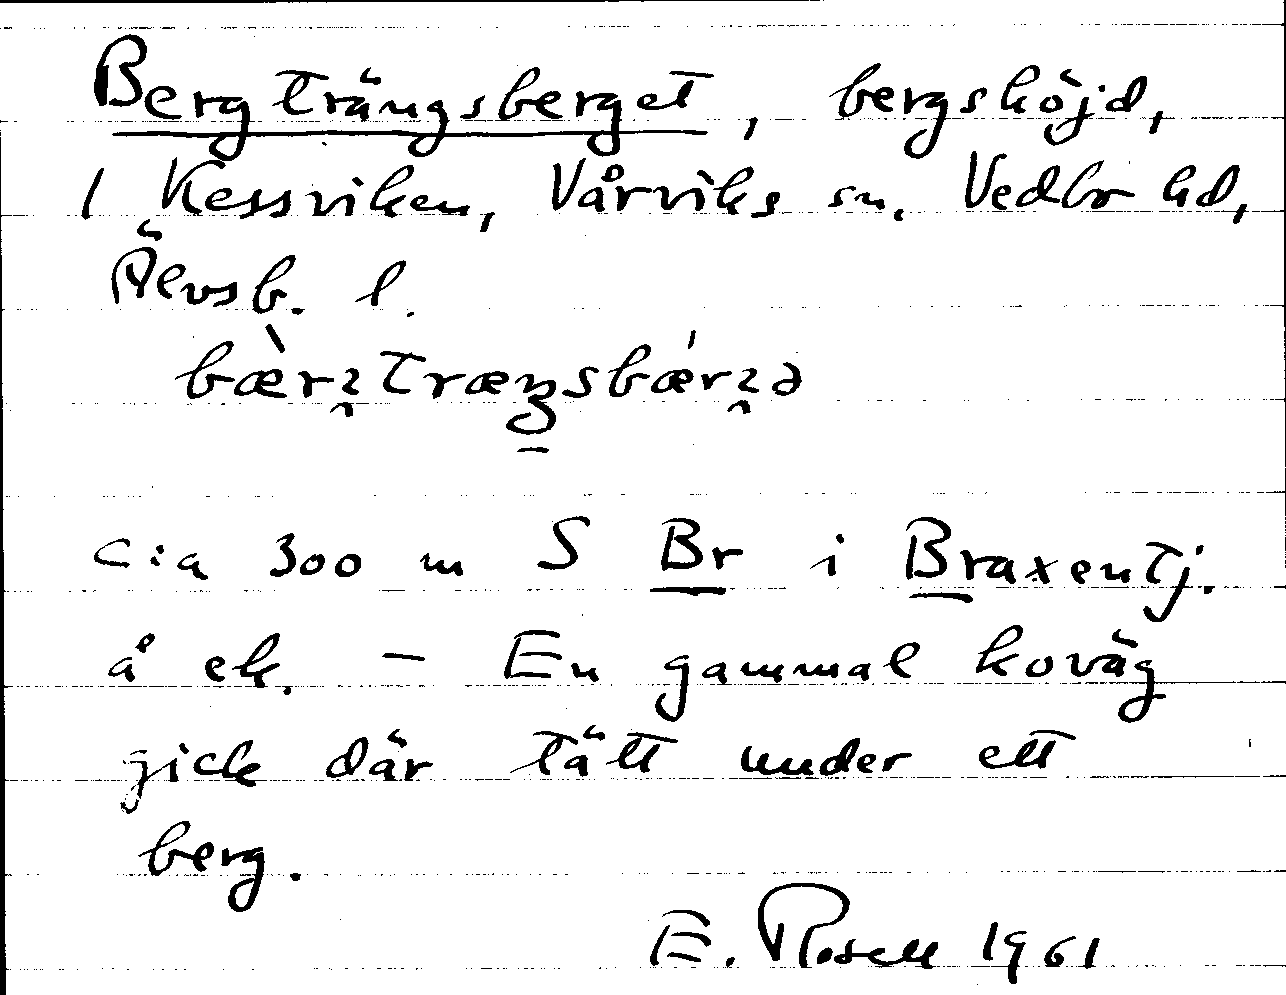 Bergträngsberget, bergshöjd,
1 Kessviken, Vårviks sn. Vedbo hd,
Älvsb. l.
c:a 300 m S Br i Braxentj.
å ek. – En gammal koväg
gick där tätt under ett
berg.
E. Rosell 1961